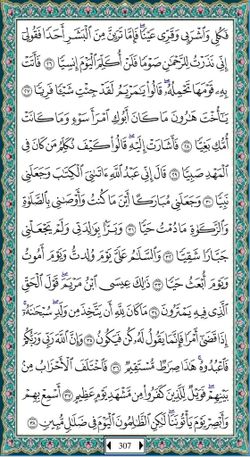 فَكُلِى وَٱشْرَبِى وَقَرِّى عَيْنًا ۖ فَإِمَّا تَرَيِنَّ مِنَ ٱلْبَشَرِ أَحَدًا فَقُولِىٓ
إِنِّى نَذَرْتُ لِلرَّحْمَٰنِ صَوْمًا فَلَنْ أُكَلِّمَ ٱلْيَوْمَ إِنسِيًّا ٢٦ فَأَتَتْ
بِهِۦ قَوْمَهَا تَحْمِلُهُۥ ۖ قَالُوا۟ يَٰمَرْيَمُ لَقَدْ جِئْتِ شَيْـًٔا فَرِيًّا ٢٧
يَٰٓأُخْتَ هَٰرُونَ مَا كَانَ أَبُوكِ ٱمْرَأَ سَوْءٍ وَمَا كَانَتْ
أُمُّكِ بَغِيًّا ٢٨ فَأَشَارَتْ إِلَيْهِ ۖ قَالُوا۟ كَيْفَ نُكَلِّمُ مَن كَانَ فِى
ٱلْمَهْدِ صَبِيًّا ٢٩ قَالَ إِنِّى عَبْدُ ٱللَّهِ ءَاتَىٰنِىَ ٱلْكِتَٰبَ وَجَعَلَنِى
نَبِيًّا ٣٠ وَجَعَلَنِى مُبَارَكًا أَيْنَ مَا كُنتُ وَأَوْصَٰنِى بِٱلصَّلَوٰةِ
وَٱلزَّكَوٰةِ مَا دُمْتُ حَيًّا ٣١ وَبَرًّۢا بِوَٰلِدَتِى وَلَمْ يَجْعَلْنِى
جَبَّارًا شَقِيًّا ٣٢ وَٱلسَّلَٰمُ عَلَىَّ يَوْمَ وُلِدتُّ وَيَوْمَ أَمُوتُ
وَيَوْمَ أُبْعَثُ حَيًّا ٣٣ ذَٰلِكَ عِيسَى ٱبْنُ مَرْيَمَ ۚ قَوْلَ ٱلْحَقِّ
ٱلَّذِى فِيهِ يَمْتَرُونَ ٣٤ مَا كَانَ لِلَّهِ أَن يَتَّخِذَ مِن وَلَدٍ ۖ سُبْحَٰنَهُۥٓ ۚ
إِذَا قَضَىٰٓ أَمْرًا فَإِنَّمَا يَقُولُ لَهُۥ كُن فَيَكُونُ ٣٥ وَإِنَّ ٱللَّهَ رَبِّى وَرَبُّكُمْ
فَٱعْبُدُوهُ ۚ هَٰذَا صِرَٰطٌ مُّسْتَقِيمٌ ٣٦ فَٱخْتَلَفَ ٱلْأَحْزَابُ مِنۢ
بَيْنِهِمْ ۖ فَوَيْلٌ لِّلَّذِينَ كَفَرُوا۟ مِن مَّشْهَدِ يَوْمٍ عَظِيمٍ ٣٧ أَسْمِعْ بِهِمْ
وَأَبْصِرْ يَوْمَ يَأْتُونَنَا ۖ لَٰكِنِ ٱلظَّٰلِمُونَ ٱلْيَوْمَ فِى ضَلَٰلٍ مُّبِينٍ ٣٨
307